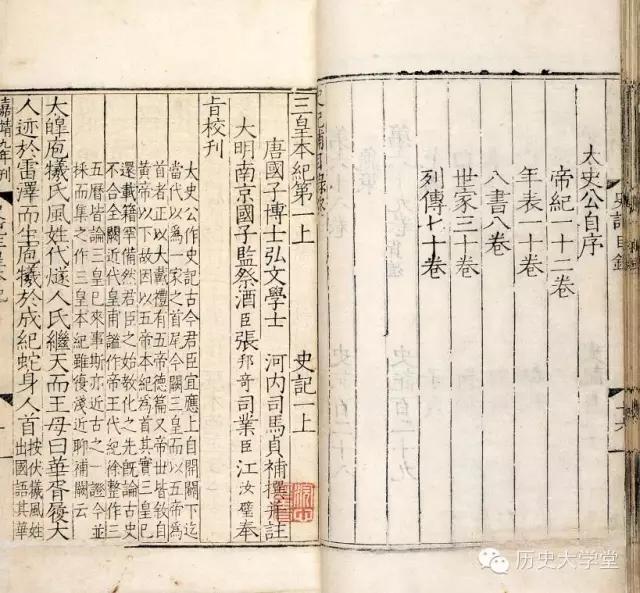 史記目錄
太史公自序
帝紀一十二卷
年表一十卷
八書八卷
世家三十卷
列傳七十卷
三皇本紀第一上 史記一上
唐國子博士弘文學士 河内司馬貞補撰并註
大明南京國子監祭酒臣張邦奇司業臣江汝璧奉
旨校刊
太史公作史記古今君臣宜應上自開闢下迄
當代以為一家之首尾今闕三皇而以五帝為
首者正以大戴禮有五帝德篇又帝世皆敘自
黃帝以下故因以五帝本紀為首其實三皇已
還載籍罕備然君臣之始教化之先既論古史
不合全闕近代皇甫謐作帝王代紀徐整作三
五曆皆論三皇已來事斯亦近古之一證今並
採而集之作三皇本紀雖復淺近聊補闕云
太皞庖犧氏風姓代燧人氏繼天而王母曰華胥履大
人迹於雷澤而生庖犧於成紀蛇身人首按伏犧風姓
出國語其華
嘉靖九年刊
历史大学堂